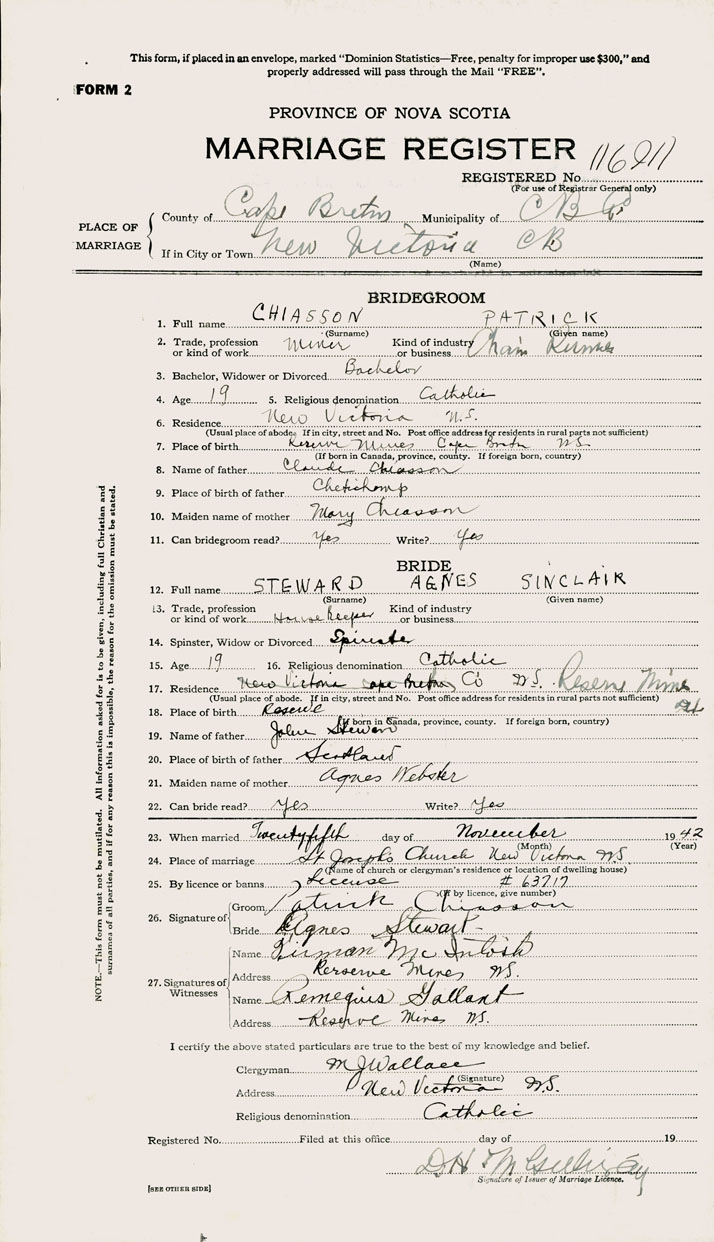 This form, if placed in an envelope, marked "Dominion Statistics—Free, penalty for improper use $300," and
properly addressed will pass through the Mail "FREE".
FORM 2
PROVINCE OF NOVA SCOTIA
MARRIAGE REGISTER
REGISTERED No. 116911
(For use of Registrar General only)
PLACE OF MARRIAGE
County of Cape Breton Municipality of CB Co
If in City or Town New Victoria CB
(Name)
BRIDEGROOM
1. Full name CHIASSON PATRICK
(Surname) (Given name)
2. Trade, profession or kind of work Miner Kind of industry or business Chain Runner
3. Bachelor, Widower or Divorced Bachelor
4. Age 19 5. Religious denomination Catholic
6. Residence New Victoria N.S.
(Usual place of abode. If in city, street and No. Post office address for residents in rural parts not sufficient)
7. Place of birth Reserve Mines Cape Breton NS
(If born in Canada, province, county. If foreign born, country)
8. Name of father Claude Chiasson
9. Place of birth of father Chetichomp
10. Maiden name of mother Mary Chiasson
11. Can bridegroom read? Yes Write? Yes
BRIDE
12. Full name STEWARD AGNES SINCLAIR
(Surname) (Given name)
13. Trade, profession or kind of work House keeper Kind of industry or business
14. Spinster, Widow or Divorced Spinster
15. Age 19 16. Religious denomination Catholic
17. Residence New Victoria Cape Breton Co N.S. Reserve Mines
(Usual place of abode. If in city, street and No. Post office address for residents in rural parts not sufficient)
18. Place of birth Reserve
(If born in Canada, province, county. If foreign born, country)
19. Name of father John Stewart
20. Place of birth of father Scotland
21. Maiden name of mother Agnes Webster
22. Can bride read? Yes Write? Yes
23. When married Twentyfifth day of November 1942
(Month) (Year)
24. Place of marriage St Joseph's Church New Victoria NS.
(Name of church or clergyman's residence or location of dwelling house)
25. By licence or banns License # 63717
(If by licence, give number)
26. Signature of
Groom Patrick Chiasson
Bride Agnes Stewart
27. Signatures of Witnesses
Name McIntosh
Address Rerserve Mines NS.
Name Remegius Gallant
Address Reserve Mines NS.
I certify the above stated particulars are true to the best of my knowledge and belief.
Clergyman M J Wallace
(Signature)
Address New Victoria N.S.
Religious denomination Catholic
Registered No. Filed at this office day of 19
D H McGillivray
Signature of Issuer of Marriage Licence.
[SEE OTHER SIDE]
NOTE.—This form must not be mutilated. All information asked for is to be given, including full Christian and
surnames of all parties, and if for any reason this is impossible, the reason for the omission must be stated.